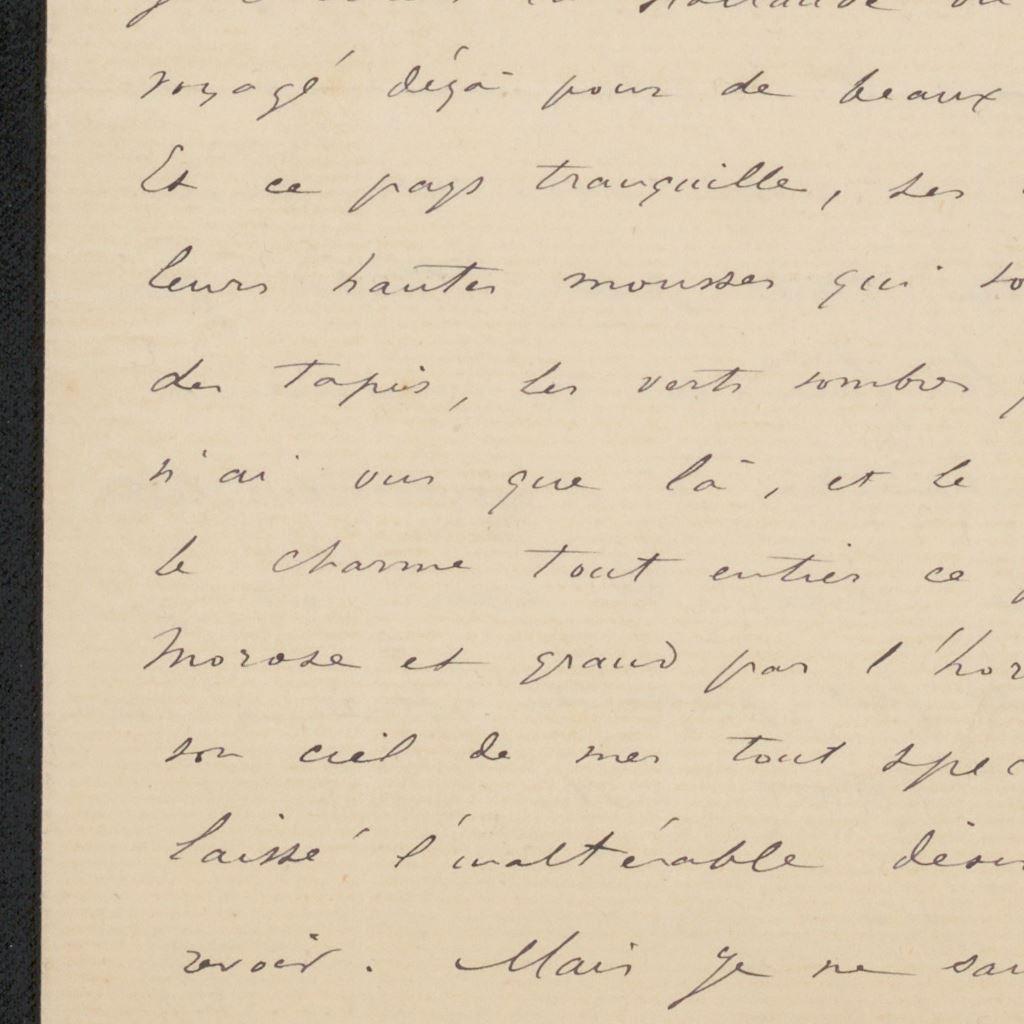 la Hollande
voyagé déjà pour de beaux
Et ce pays tranquille, ses
leurs hautes mousses qui so
des tapis, les verts sombres
n'ai vus que là, et le
le charme tout entier ce
Morose et grand par l'hor
son ciel de mer tout spec
laissé l'inaltérable désir
revoir. Mais je ne sau